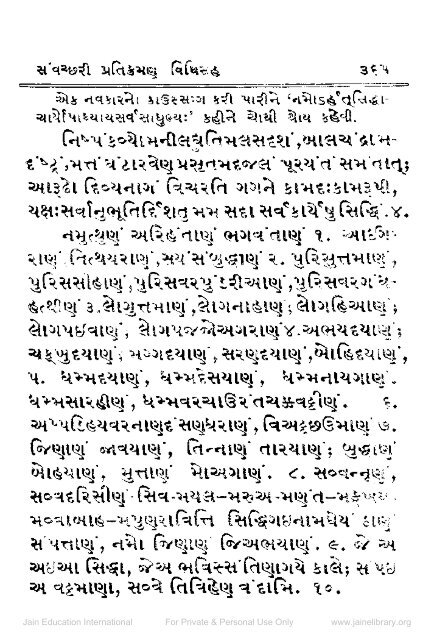 સંવચ્છરી પ્રતિક્રમણ વિધિસહ ૩૬૫
એક નવકારનો કાઉસ્સગ્ગ કરી પારીને ‘નમોઽર્હત્સિદ્ધા-
ચાર્યોપાધ્યાયસર્વસાધુભ્યઃ’ કહીને ચોથી થોય કહેવી.
નિષ્પંકવ્યોમનીલદ્યુતિમલસદૃશં,બાલચંદ્રાભ-
દંષ્ટ્રં,મત્તં ઘંટારવેણ પ્રસૃતમદજલં પૂરયંતં સમંતાત્;
આરૂઢો દિવ્યનાગં વિચરતિ ગગને કામદઃકામરૂપી,
યક્ષઃસર્વાનુભૂતિર્દિશતુ મમ સદા સર્વકાર્યેષુ સિદ્ધિં.૪.
નમુત્થુણં અરિહંતાણં ભગવંતાણં ૧. આઇગ-
રાણં તિત્થયરાણં,સયંસંબુદ્ધાણં ૨. પુરિસુત્તમાણં,
પુરિસસીહાણં,પુરિસવરપુંડરીઆણં,પુરિસવરગંધ-
હત્થીણં ૩.લોગુત્તમાણં,લોગનાહાણં; લોગહિઆણં;
લોગપઇવાણં, લોગપજ્જોઅગરાણં ૪.અભયદયાણં;
ચક્ખુદયાણં; મગ્ગદયાણં, સરણદયાણં,બોહિદયાણં,
૫. ધમ્મદયાણં, ધમ્મદેસયાણં, ધમ્મનાયગાણં.
ધમ્મસારહીણં, ધમ્મવરચાઉરંતચક્કવટ્ટીણં. ૬.
અપ્પડિહયવરનાણદંસણધરાણં,વિઅટ્ટછઉમાણં ૭.
જિણાણં જાવયાણં, તિન્નાણં તારયાણં; બુદ્ધાણં
બોહયાણં, મુત્તાણં મોઅગાણં. ૮. સવ્વન્નૂણં,
સવ્વદરિસીણં સિવ-મયલ-મરુઅ-મણંત-મક્ખય-
મવ્વાબાહ-મપુણરાવિત્તિ સિદ્ધિગઇનામધેયં ઠાણં
સંપત્તાણં, નમો જિણાણં જિઅભયાણં. ૯. જે અ
અઇઆ સિદ્ધા, જેઅ ભવિસ્સંતિણાગયે કાલે; સંપઇ
અ વટ્ટમાણા, સવ્વે તિવિહેણ વંદામિ. ૧૦.
Jain Education International For Private & Personal Use Only www.jainelibrary.org